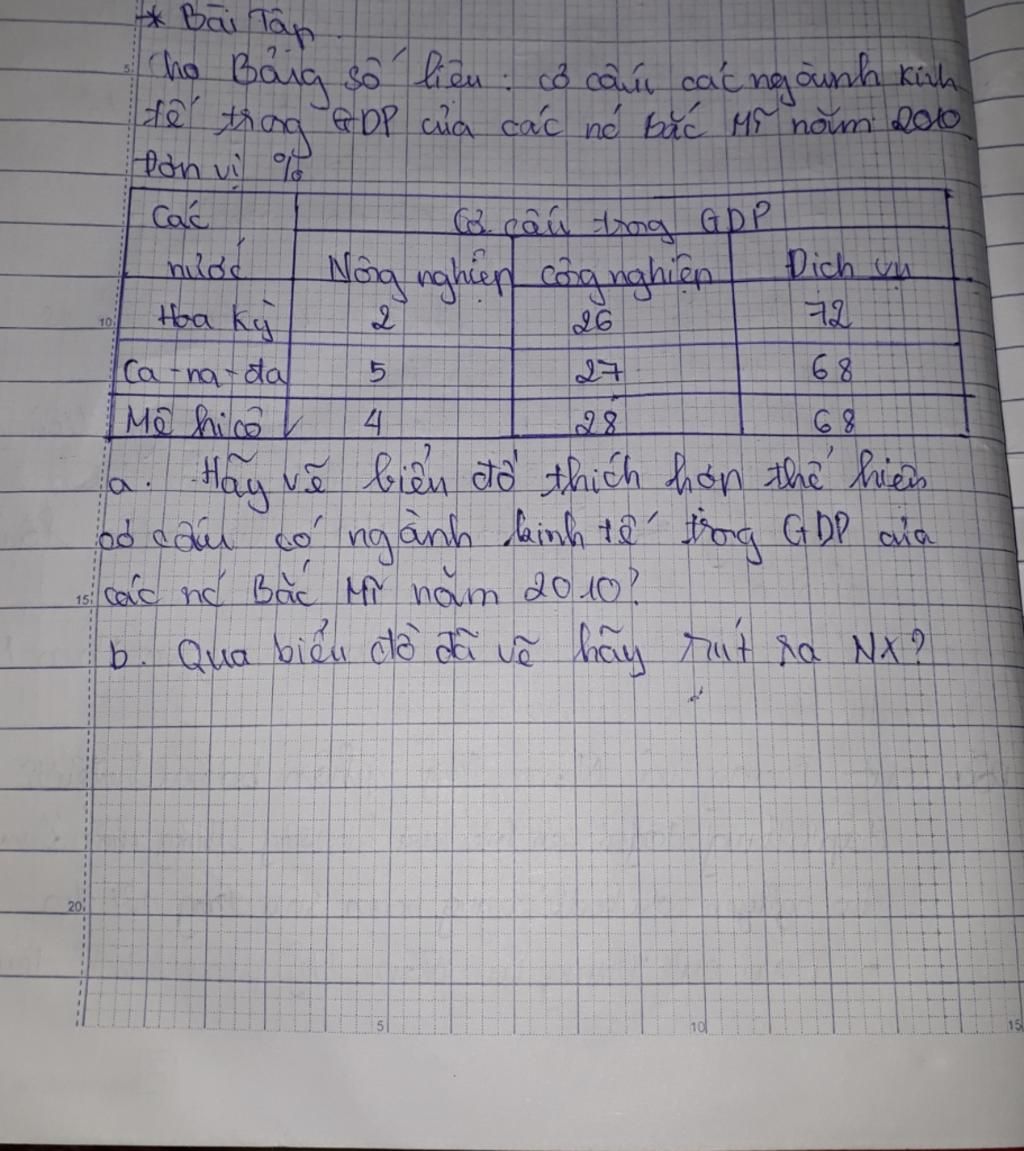 * Bài Tập
Cho Bảng số liệu: cơ cấu các ngành kinh
tế trong GDP của các nc bắc Mĩ năm 2010
Đơn vị %
Các Cơ cấu trong GDP
nước Nông nghiệp công nghiệp Dịch vụ
Hoa Kỳ 2 26 72
Ca-na-đa 5 27 68
Mê hi cô 4 28 68
a. Hãy vẽ biểu đồ thích hợp thể hiện
cơ cấu có ngành kinh tế trong GDP của
các nc Bắc Mĩ năm 2010?
b. Qua biểu đồ đã vẽ hãy rút ra NX?
5
10
15
20
5 10 15